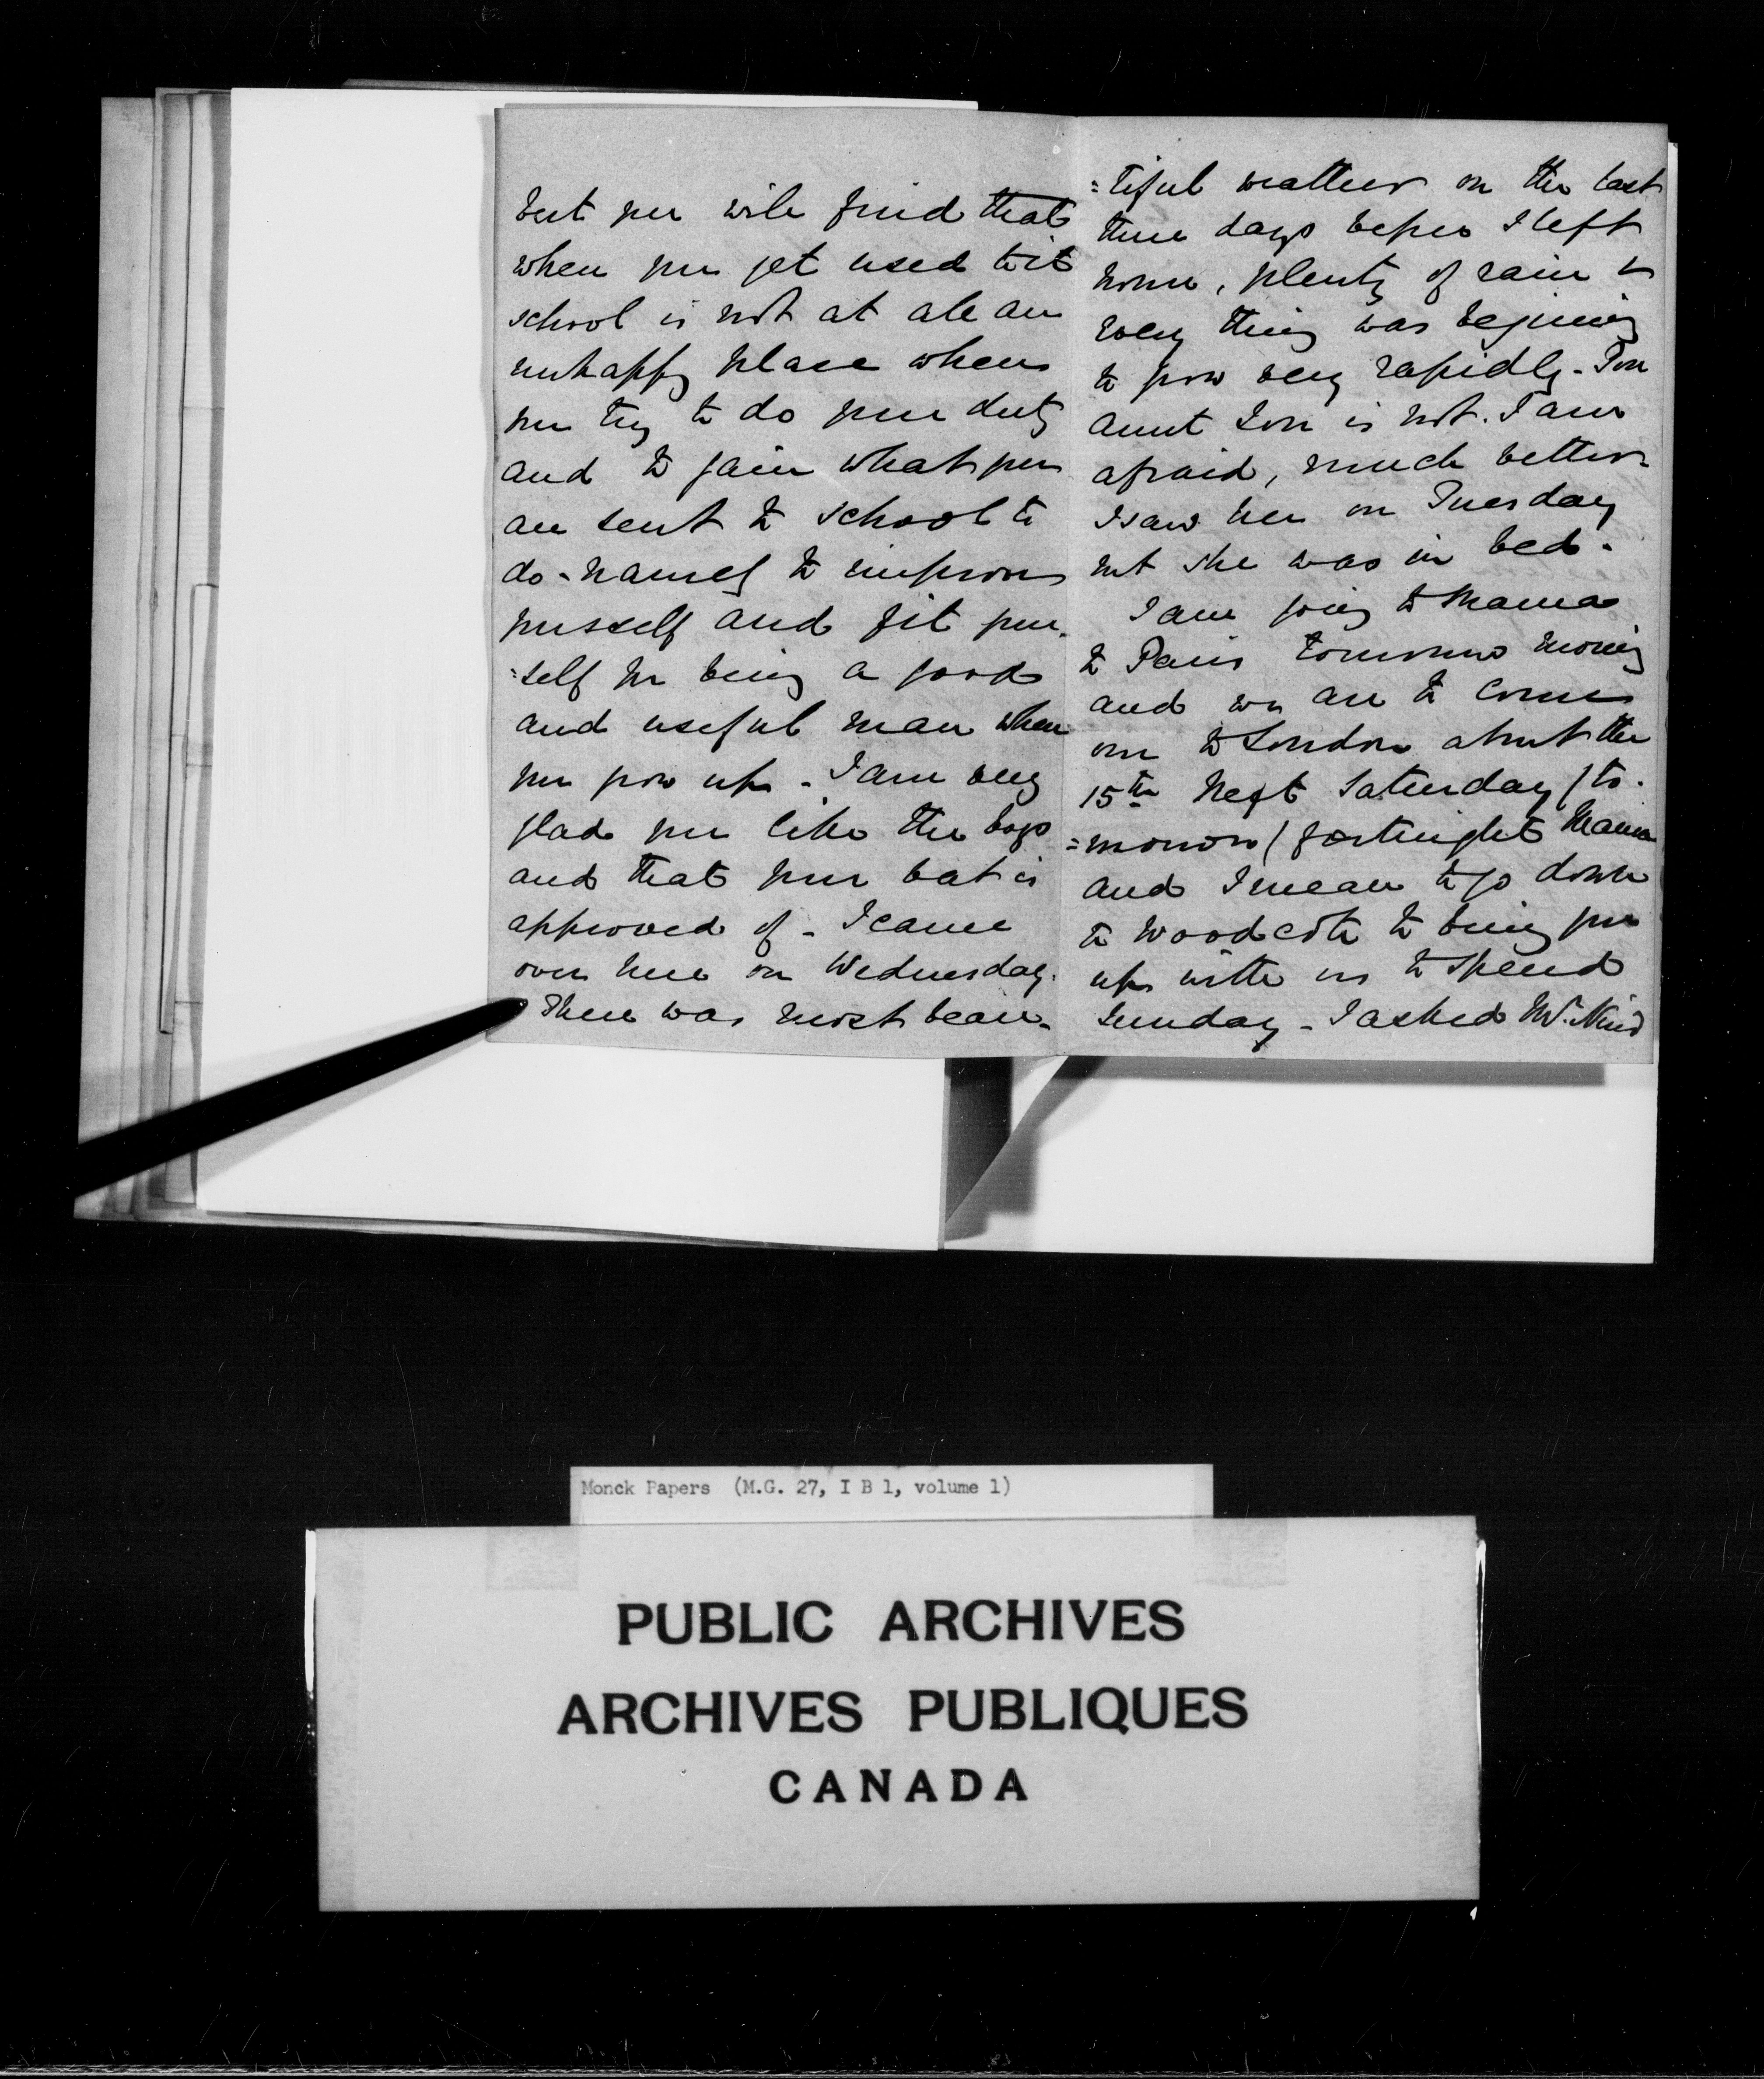 but you will find that
when you get used to it
school is not at all an
unhappy place when
you try to do your duty
and to gain what you
are sent to school to
do - namely to improve
yourself and fit your=
=self for being a good
and useful man when
you grow up - I am very
glad you like the boys
and that your bat is
approved of - I came
over here on Wednesday.
There was most beau=
=tiful weather on the last
three days before I left
home, plenty of rain &
every thing was begining
to grow very rapidly - Your
aunt is not. I am
afraid, much better
I saw her on Tuesday
but she was in bed.
I am going to Mama
to Paris tomorrow morning
and we are to come
over to London about the
15th Next Saturday (to=
=morrow) fortnight Mama
and I mean to go down
to Woodcote to bring you
up with us to spend
Sunday - I asked Mr. Nind
Monck Papers (M.G. 27, I B 1, volume 1)
PUBLIC ARCHIVES
ARCHIVES PUBLIQUES
CANADA